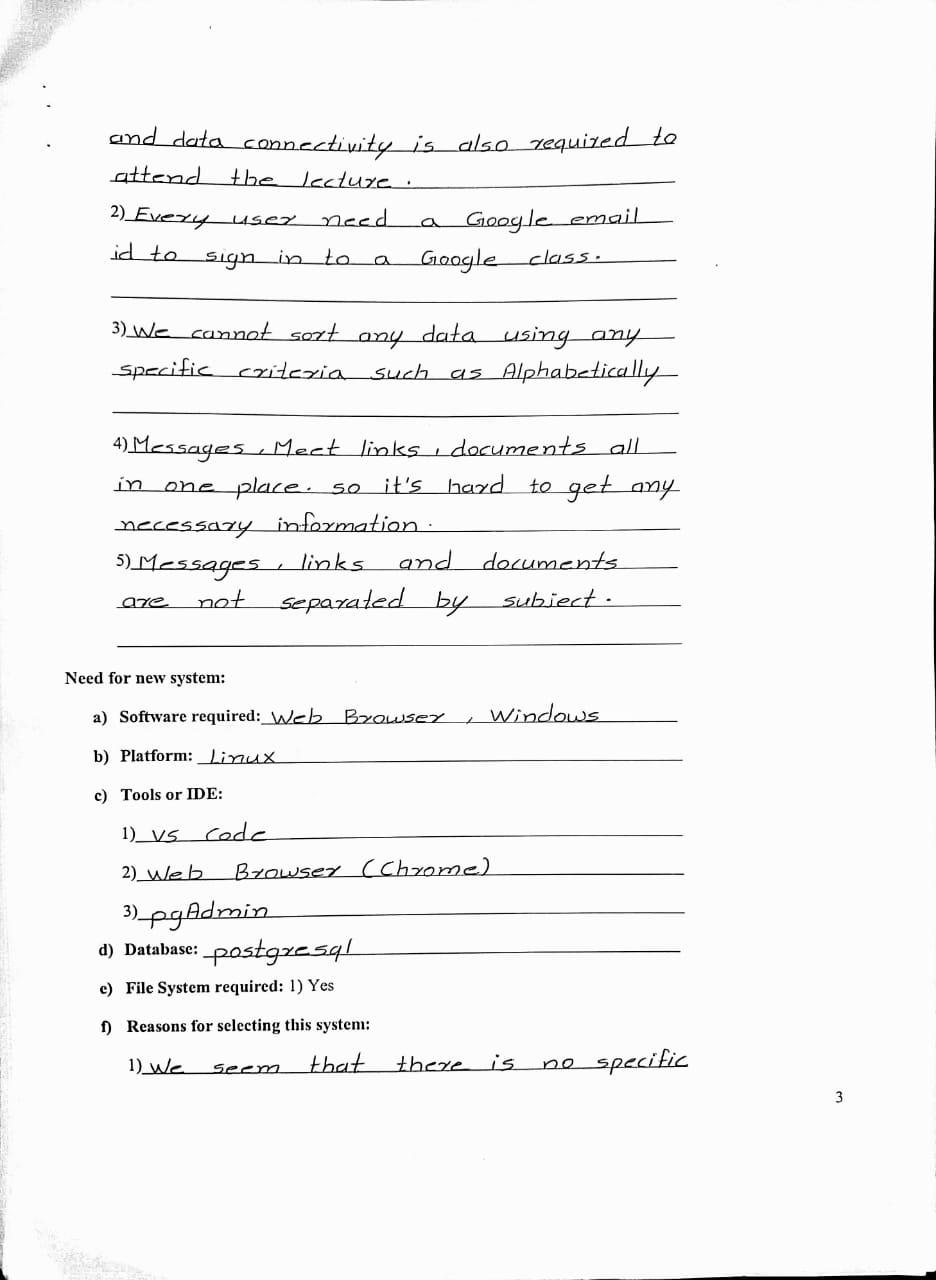 and data connectivity is also required to
attend the lecture.
2) Every user need a Google email
id to sign in to a Google class.
3) We cannot sort any data using any
specific criteria such as Alphabetically
4) Messages, Meet links, documents all
in one place. so it's hard to get any
necessary information.
5) Messages, links and documents
are not separated by subject.
Need for new system:
a) Software required: Web Browser, Windows
b) Platform: Linux
c) Tools or IDE:
1) VS Code
2) Web Browser (Chrome)
3) pgAdmin
d) Database: postgresql
e) File System required: 1) Yes
f) Reasons for selecting this system:
1) We seem that there is no specific
3